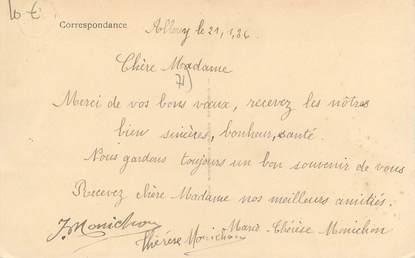 10 €
Correspondance
le 21.1.36
Chère Madame
71)
Merci de vos bons vœux, recevez les nôtres
bien sincères, bonheur, santé.
Nous gardons toujours un bon souvenir de vous
Recevez chère Madame nos meilleurs amitiés.
Marie-Thérèse Monichon
J. Monichon
Thérèse Monichon